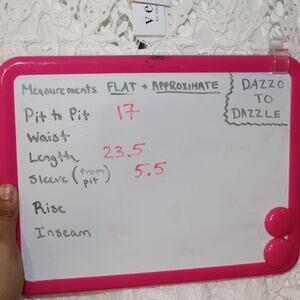 ve
Measurements FLAT + APPROXIMATE
DAZZO
TO
DAZZLE
Pit to Pit 17
Waist
Length 23.5
Sleeve (from pit) 5.5
Rise
Inseam